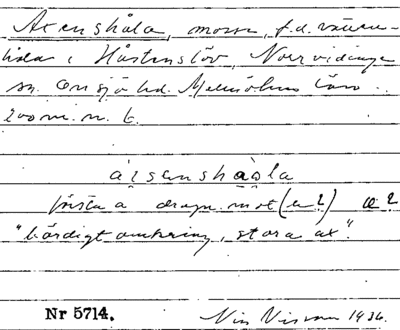 Axenshåla, mosse, f.d. vatten-
håla i Håstenslöv, Norrvidinge
sn. Onsjö hd. Malmöhus län.
200 m. n. t.
ácsensháơla
första a dragn. mot
"bördigt omkring, stora ax".
Nr 5714.
Nils Nilsson 1936.